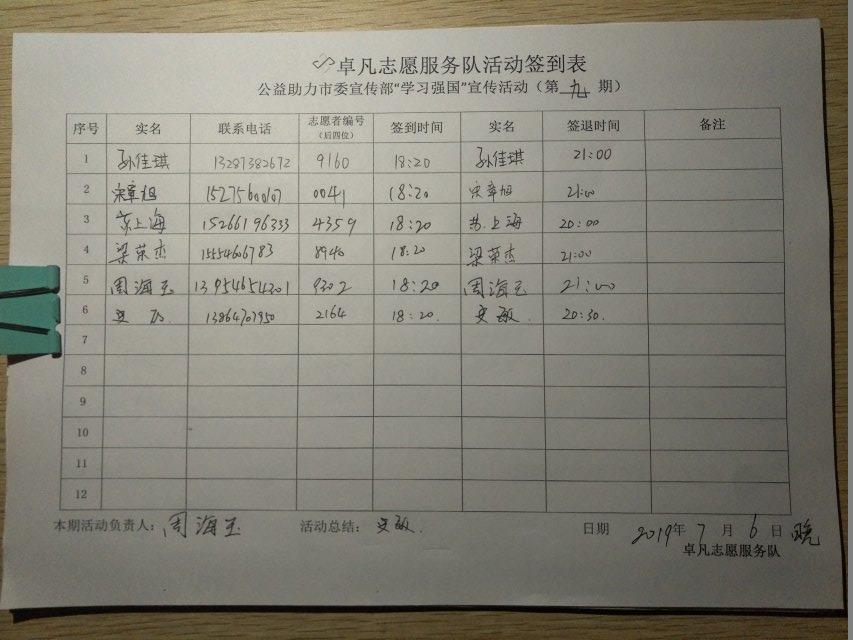 卓凡志愿服务队活动签到表
公益助力市委宣传部“学习强国”宣传活动（第九期）
序号 实名 联系电话 志愿者编号（后四位） 签到时间 实名 签退时间 备注
1 孙佳琪 13287382672 9160 18:20 孙佳琪 21:00
2 宋章旭 15275600107 0041 18:20 宋章旭 21:00
3 苏上海 15266196333 4359 18:20 苏上海 20:00
4 梁荣杰 15554606783 8940 18:20 梁荣杰 21:00
5 周海玉 13954654301 9302 18:20 周海玉 21:00
6 史敏 13864707950 2164 18:20 史敏 20:30
7
8
9
10
11
12
本期活动负责人：周海玉 活动总结：史敏 日期 2019年7月6日晚
卓凡志愿服务队